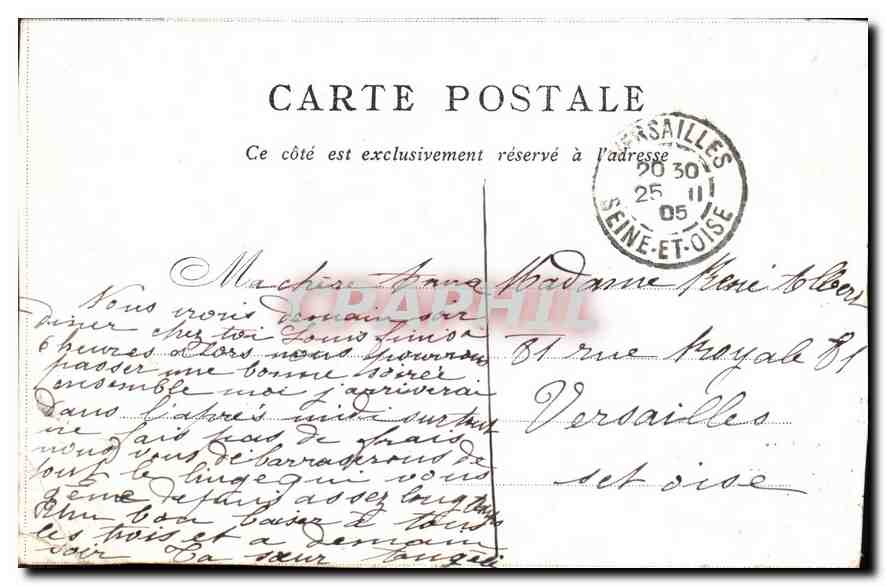 CARTE POSTALE
Ce côté est exclusivement réservé à l'adresse
VERSAILLES
20 30
25 11
05
SEINE-ET-OISE
CPAPHIL
Ma chère
Nous irons demain soir
diner chez toi Louis finira
6 heures alors nous pourron
passer une bonne soirée
ensemble moi j'arriverai
dans l'après midi surtout
ne fais pas de frais
nous vous débarraserons de
tout le linge qui vous
gène depuis assez longtemps
un bon baiser à tous
les trois et a demain
soir Ta sœur
Madame René Albert
81 rue Royale 81
Versailles
S et oise